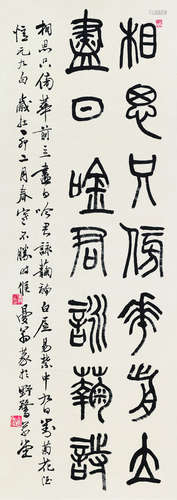 相思只傍花前立
盡日吟君詠蘜詩
相思只傍華前立盡日吟君詠蘜詩白居易禁中九日對菊花酒
憶元九句歲在卯二月春寒不勝